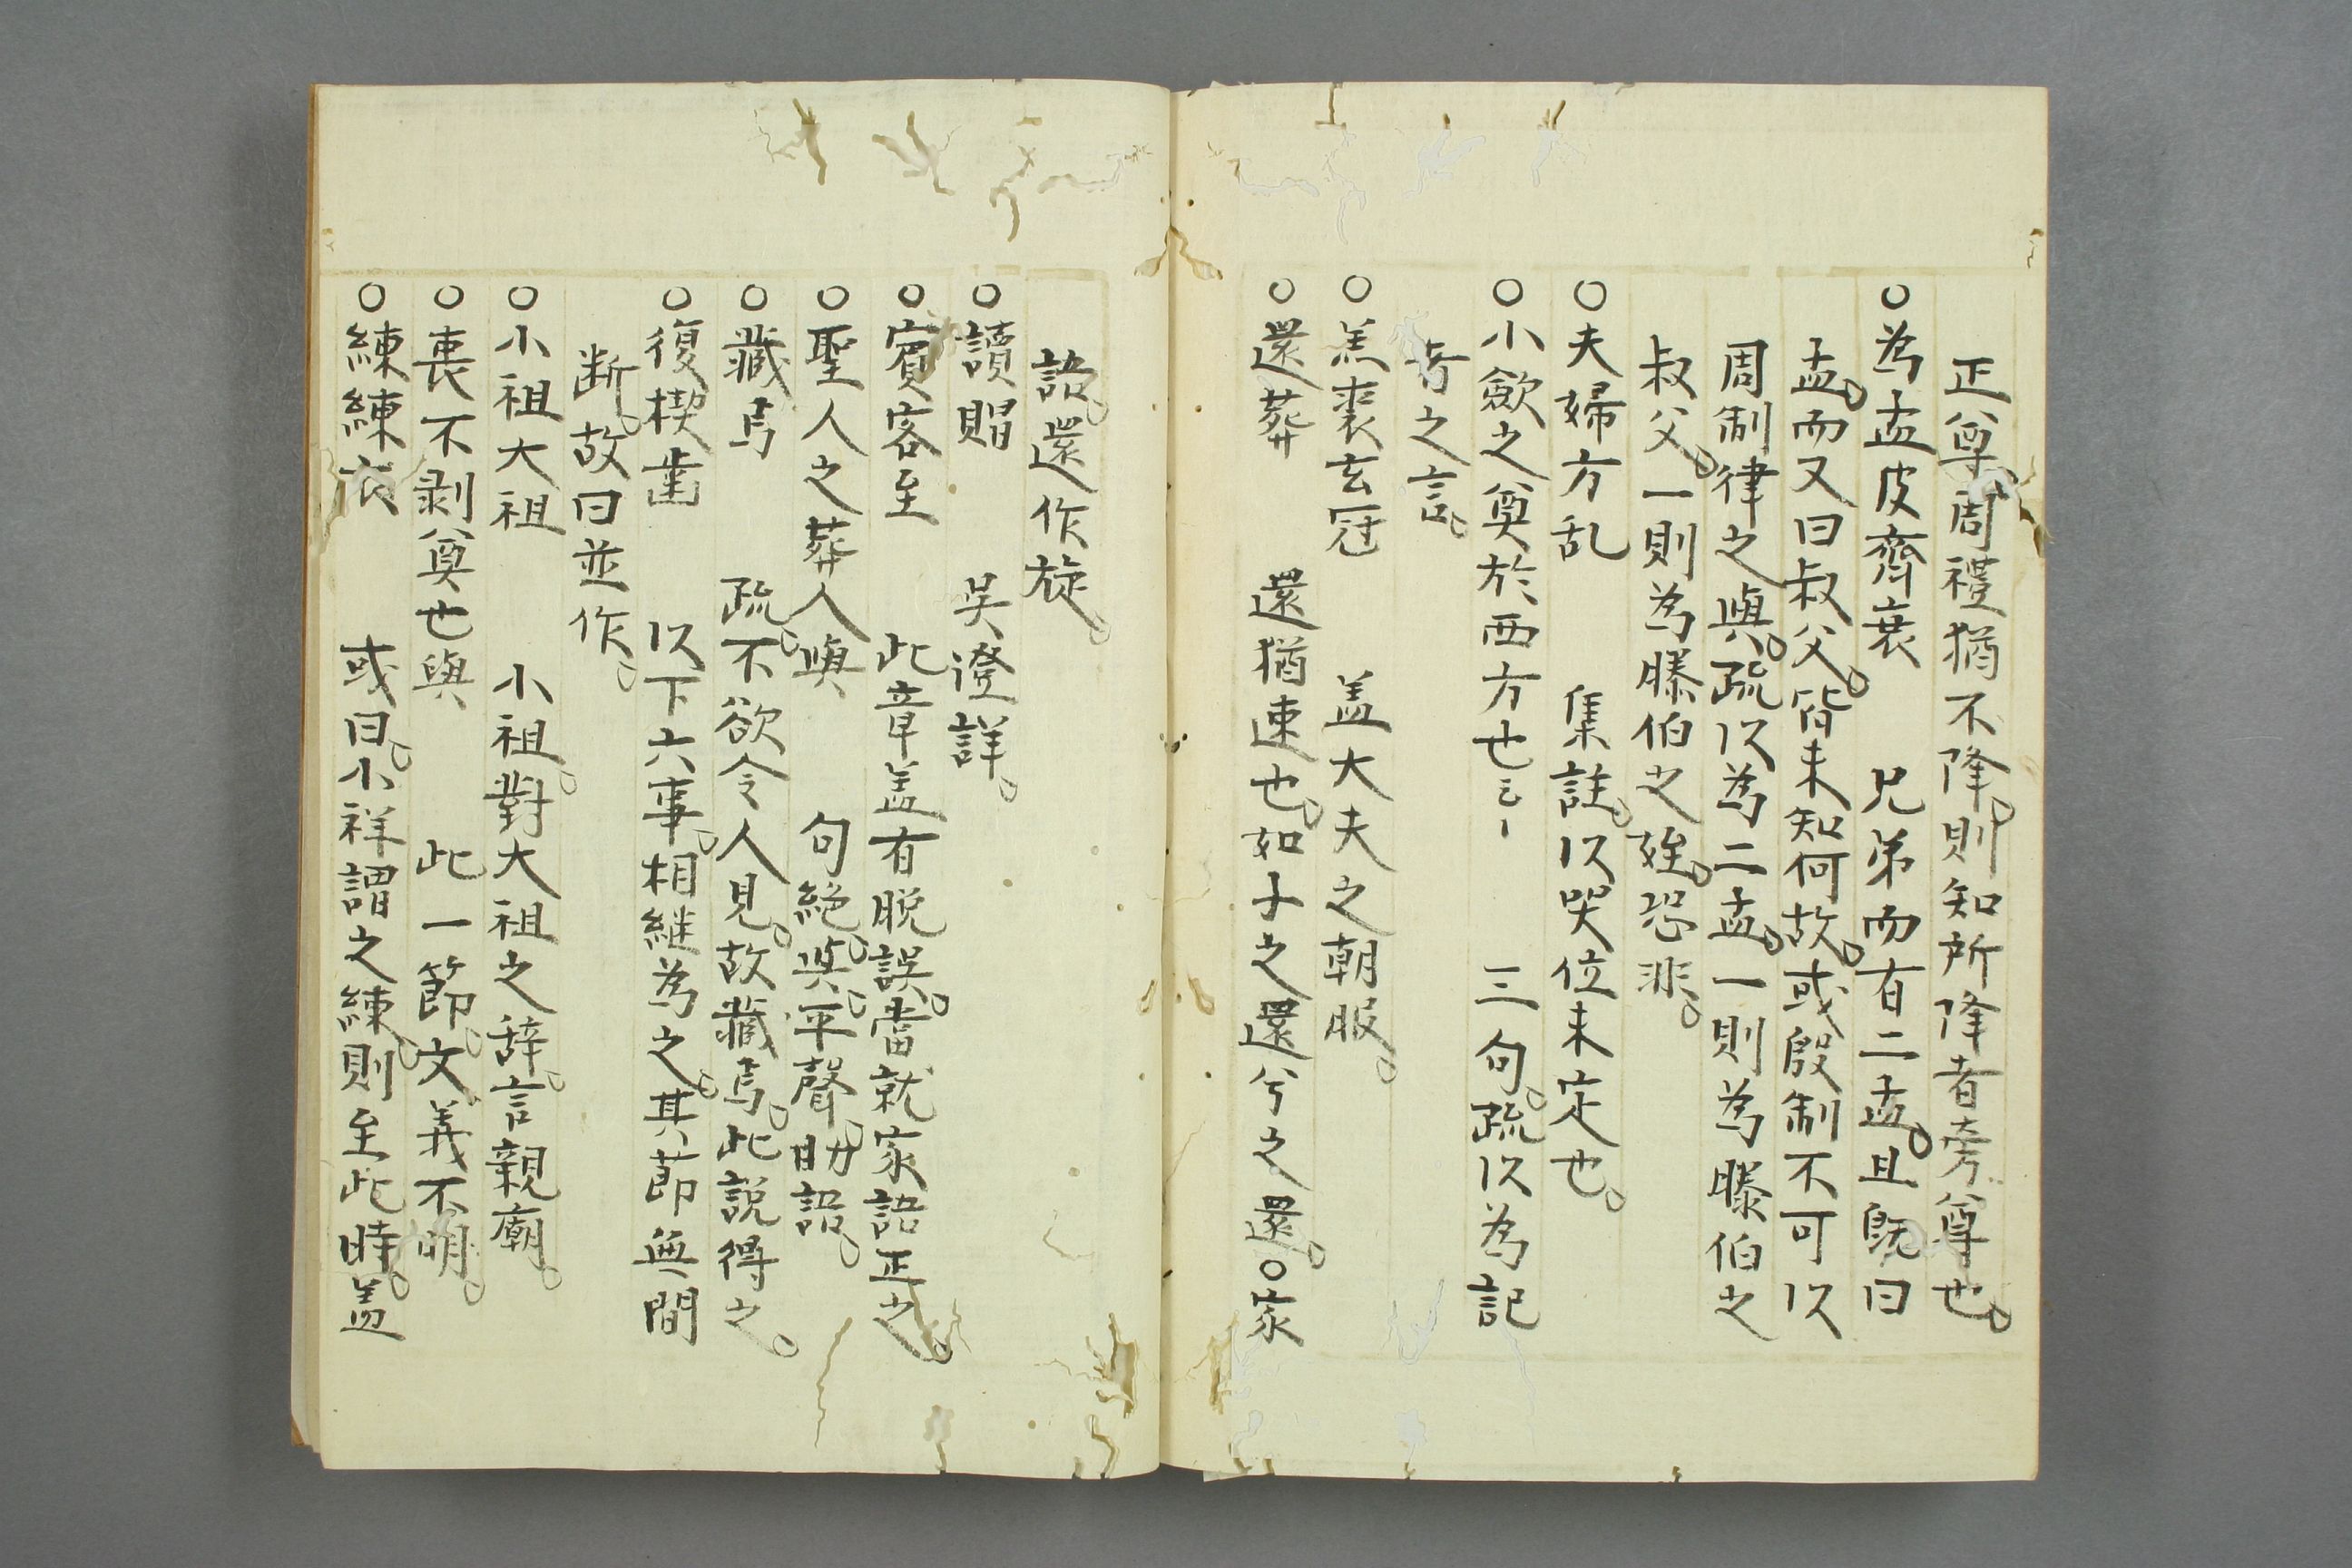 正尊周禮猶不降則知所降者旁尊也
○為孟皮齊衰　兄弟而有二孟且既曰
孟而又曰叔父皆未知何故或殷制不可以
周制律之與疏以為二孟一則為滕伯之
叔父一則為滕伯之姪恐非
○夫婦方乱　集註以哭位未定也
○小歛之奠於西方也云々　三句疏以為記
者之言
○羔裘玄冠　盖大夫之朝服
○還葬　還猶速也如子之還兮之還○家
語還作旋
○讀賵　吴澄詳
○賓客至　此章盖有脱誤當就家語正之
○聖人之葬人與　句絶與平聲助語
○藏焉　疏不欲令人見故藏焉此説得之
○復楔齒　以下六事相継為之其莭無間
断故曰並作
○小祖大祖　小祖對大祖之辞言親廟
○喪不剥奠也與　此一節文義不明
○練練衣　或曰小祥謂之練則至此時盖